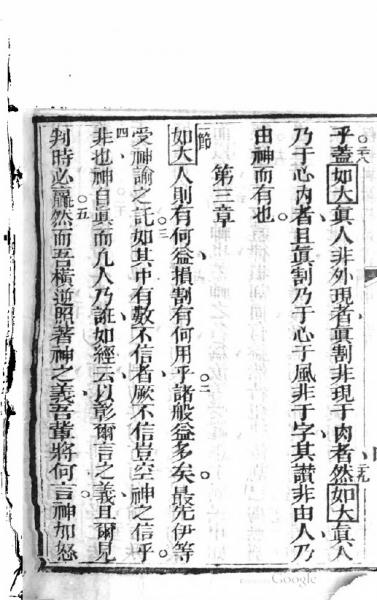 乎蓋如大眞人非外現者眞割非現于肉者然如大眞人
乃于心內者且眞割乃于心于風非于字其讃非由人乃
由神而有也
第三章
一節
如大人則有何益損割有何用乎諸般益多矣最先伊等
受神諭之託如其中有數不信者厥不信豈空神之信乎
非也神自眞而凡人乃誑如經云以彰爾言之義且爾見
判時必贏然而吾橫逆照著神之義吾輩將何言神加怒
Google